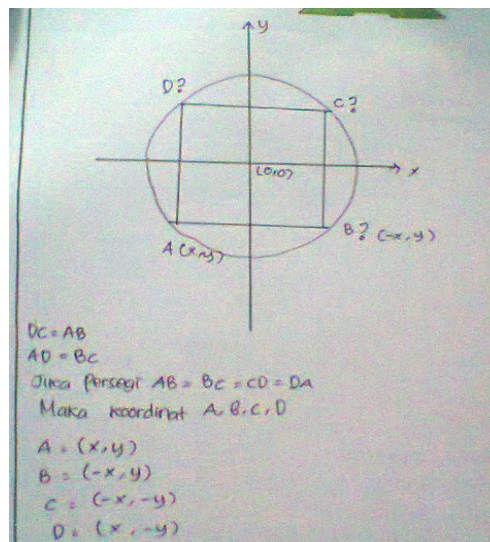 y
D?
C?
x
(0,0)
B? (-x, y)
A (x,y)
DC = AB
AD = BC
Jika Persegi AB = BC = CD = DA
Maka koordinat A, B, C, D
A = (x, y)
B = (-x, y)
C = (-x, -y)
D = (x, -y)